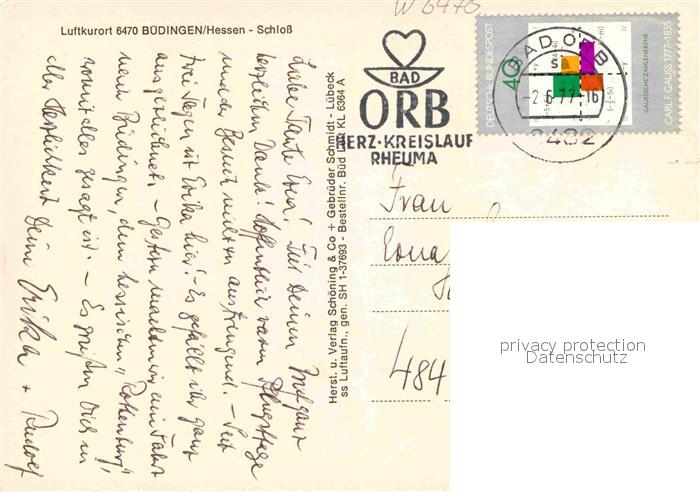 W 6470
Luftkurort 6470 BÜDINGEN/Hessen - Schloß
Liebe Tante Erna! Für Deinen Brief ganz
herzlichen Dank! Hoffentlich waren Pfingsttage
und der Besuch nicht zu anstrengend. - Seit
drei Tagen ist Erika hier! - Es gefällt ihr ganz
ausgezeichnet. - Gestern machten wir eine Fahrt
nach Büdingen, dem hessischen "Rothenburg",
womit alles gesagt ist. - Es grüßen Dich in
aller Herzlichkeit Deine Erika + Rudolf
Herst. u. Verlag Schöning & Co + Gebrüder Schmidt - Lübeck
ss Luftaufn., gen. SH 1-37693 - Bestellnr. Büd KL 6364 A
BAD
ORB
HERZ·KREISLAUF
RHEUMA
BAD ORB
-2.6.77-16
6482
DEUTSCHE BUNDESPOST
40
GAUSSSCHE ZAHLENEBENE
CARL F. GAUSS 1777-1855
Frau
Erna
484
privacy protection
Datenschutz